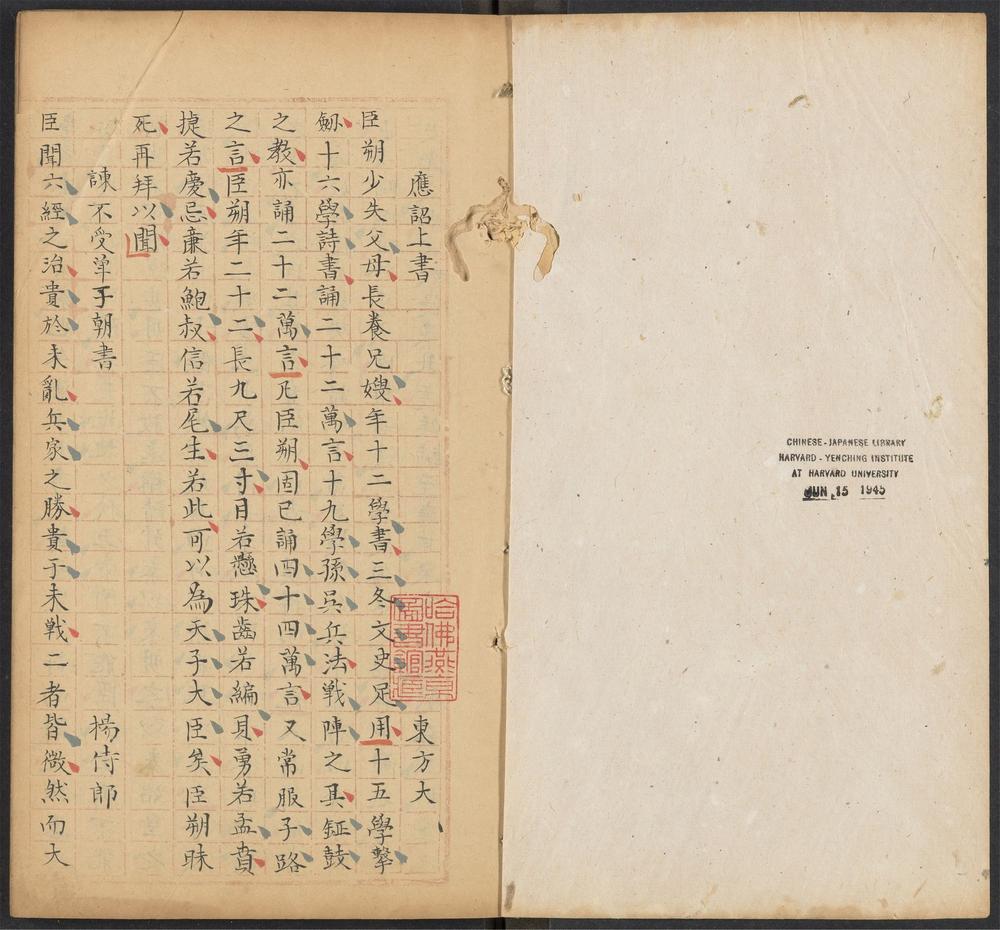 應詔上書 東方大
臣朔少失父母長養兄嫂年十二學書三冬文史足用十五學擊
劒十六學詩書誦二十二萬言十九學孫吳兵法戰陣之具鉦鼓
之教亦誦二十二萬言凡臣朔固已誦四十四萬言又常服子路
之言臣朔年二十二長九尺三寸目若懸珠齒若編貝勇若孟賁
捷若慶忌廉若鮑叔信若尾生若此可以為天子大臣矣臣朔昧
死再拜以聞
諫不受单于朝書 揚侍郎
臣聞六經之治貴於未亂兵家之勝貴于未戰二者皆微然而大
哈佛燕京圖書館藏
CHINESE-JAPANESE LIBRARY
HARVARD-YENCHING INSTITUTE
AT HARVARD UNIVERSITY
JUN 15 1945